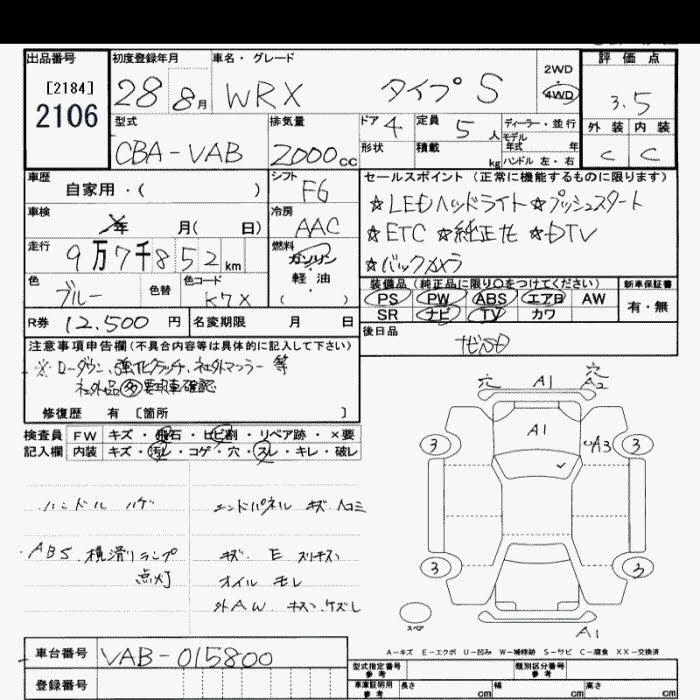 出品番号 初度登録年月 車名・グレード 評価点
[2184]
2106
28 8月 WRX タイプS 2WD 4WD 3.5
型式 排気量 ドア 4 定員 5人 ディーラー・並行 外装 内装
CBA-VAB 2000cc 形状 積載 kg モデル年式 年 C C
ハンドル 左・右
車歴 シフト セールスポイント (正常に機能するものに限ります)
自家用・( ) F6 ☆LEDヘッドライト☆プッシュスタート
車検 冷房 ☆ETC ☆純正ナビ ☆DTV
年 月( 日) AAC ☆バックカメラ
走行 燃料
9万7千852km ガソリン
軽油
( )
色 色替 色コード 装備品(純正品に限り○をつけてください) 新車保証書
ブルー K7X PS PW ABS エアB AW 有・無
SR ナビ TV カワ
R券 12.500円 名変期限 月 日 後日品
注意事項申告欄(不具合内容等は具体的に記入して下さい)
※ローダウン、強化クラッチ、社外マフラー 等
社外品多 要現車確認
修復歴 有 〔箇所 〕
穴 A1 穴 A2
検査員 FW キズ・飛石・ヒビ割・リペア跡・×要
記入欄 内装 キズ・汚レ・コゲ・穴・スレ・キレ・破レ
A1
A3
3 3
ハンドル ハゲ エンドパネル キズ ヘコミ
・ABS 横滑りランプ
点灯
オイル モレ
外AW キズ、ケズレ
3 3
スペア
A1
A-キズ E-エクボ U-凹み W-補修跡 S-サビ C-腐食 XX-交換済
車台番号 VAB-015800 型式指定番号 参考 類別区分番号 参考
登録番号 車庫証明用 参考 長さ cm 幅 cm 高さ cm